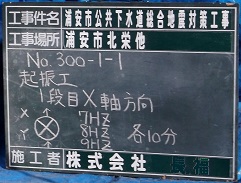 工事件名 浦安市公共下水道総合地震対策工事
工事場所 浦安市北栄他
No.300-1-1
起振工
1段目X軸方向
X Y 7HZ
8HZ 各10分
9HZ
施工者 株式会社 長福